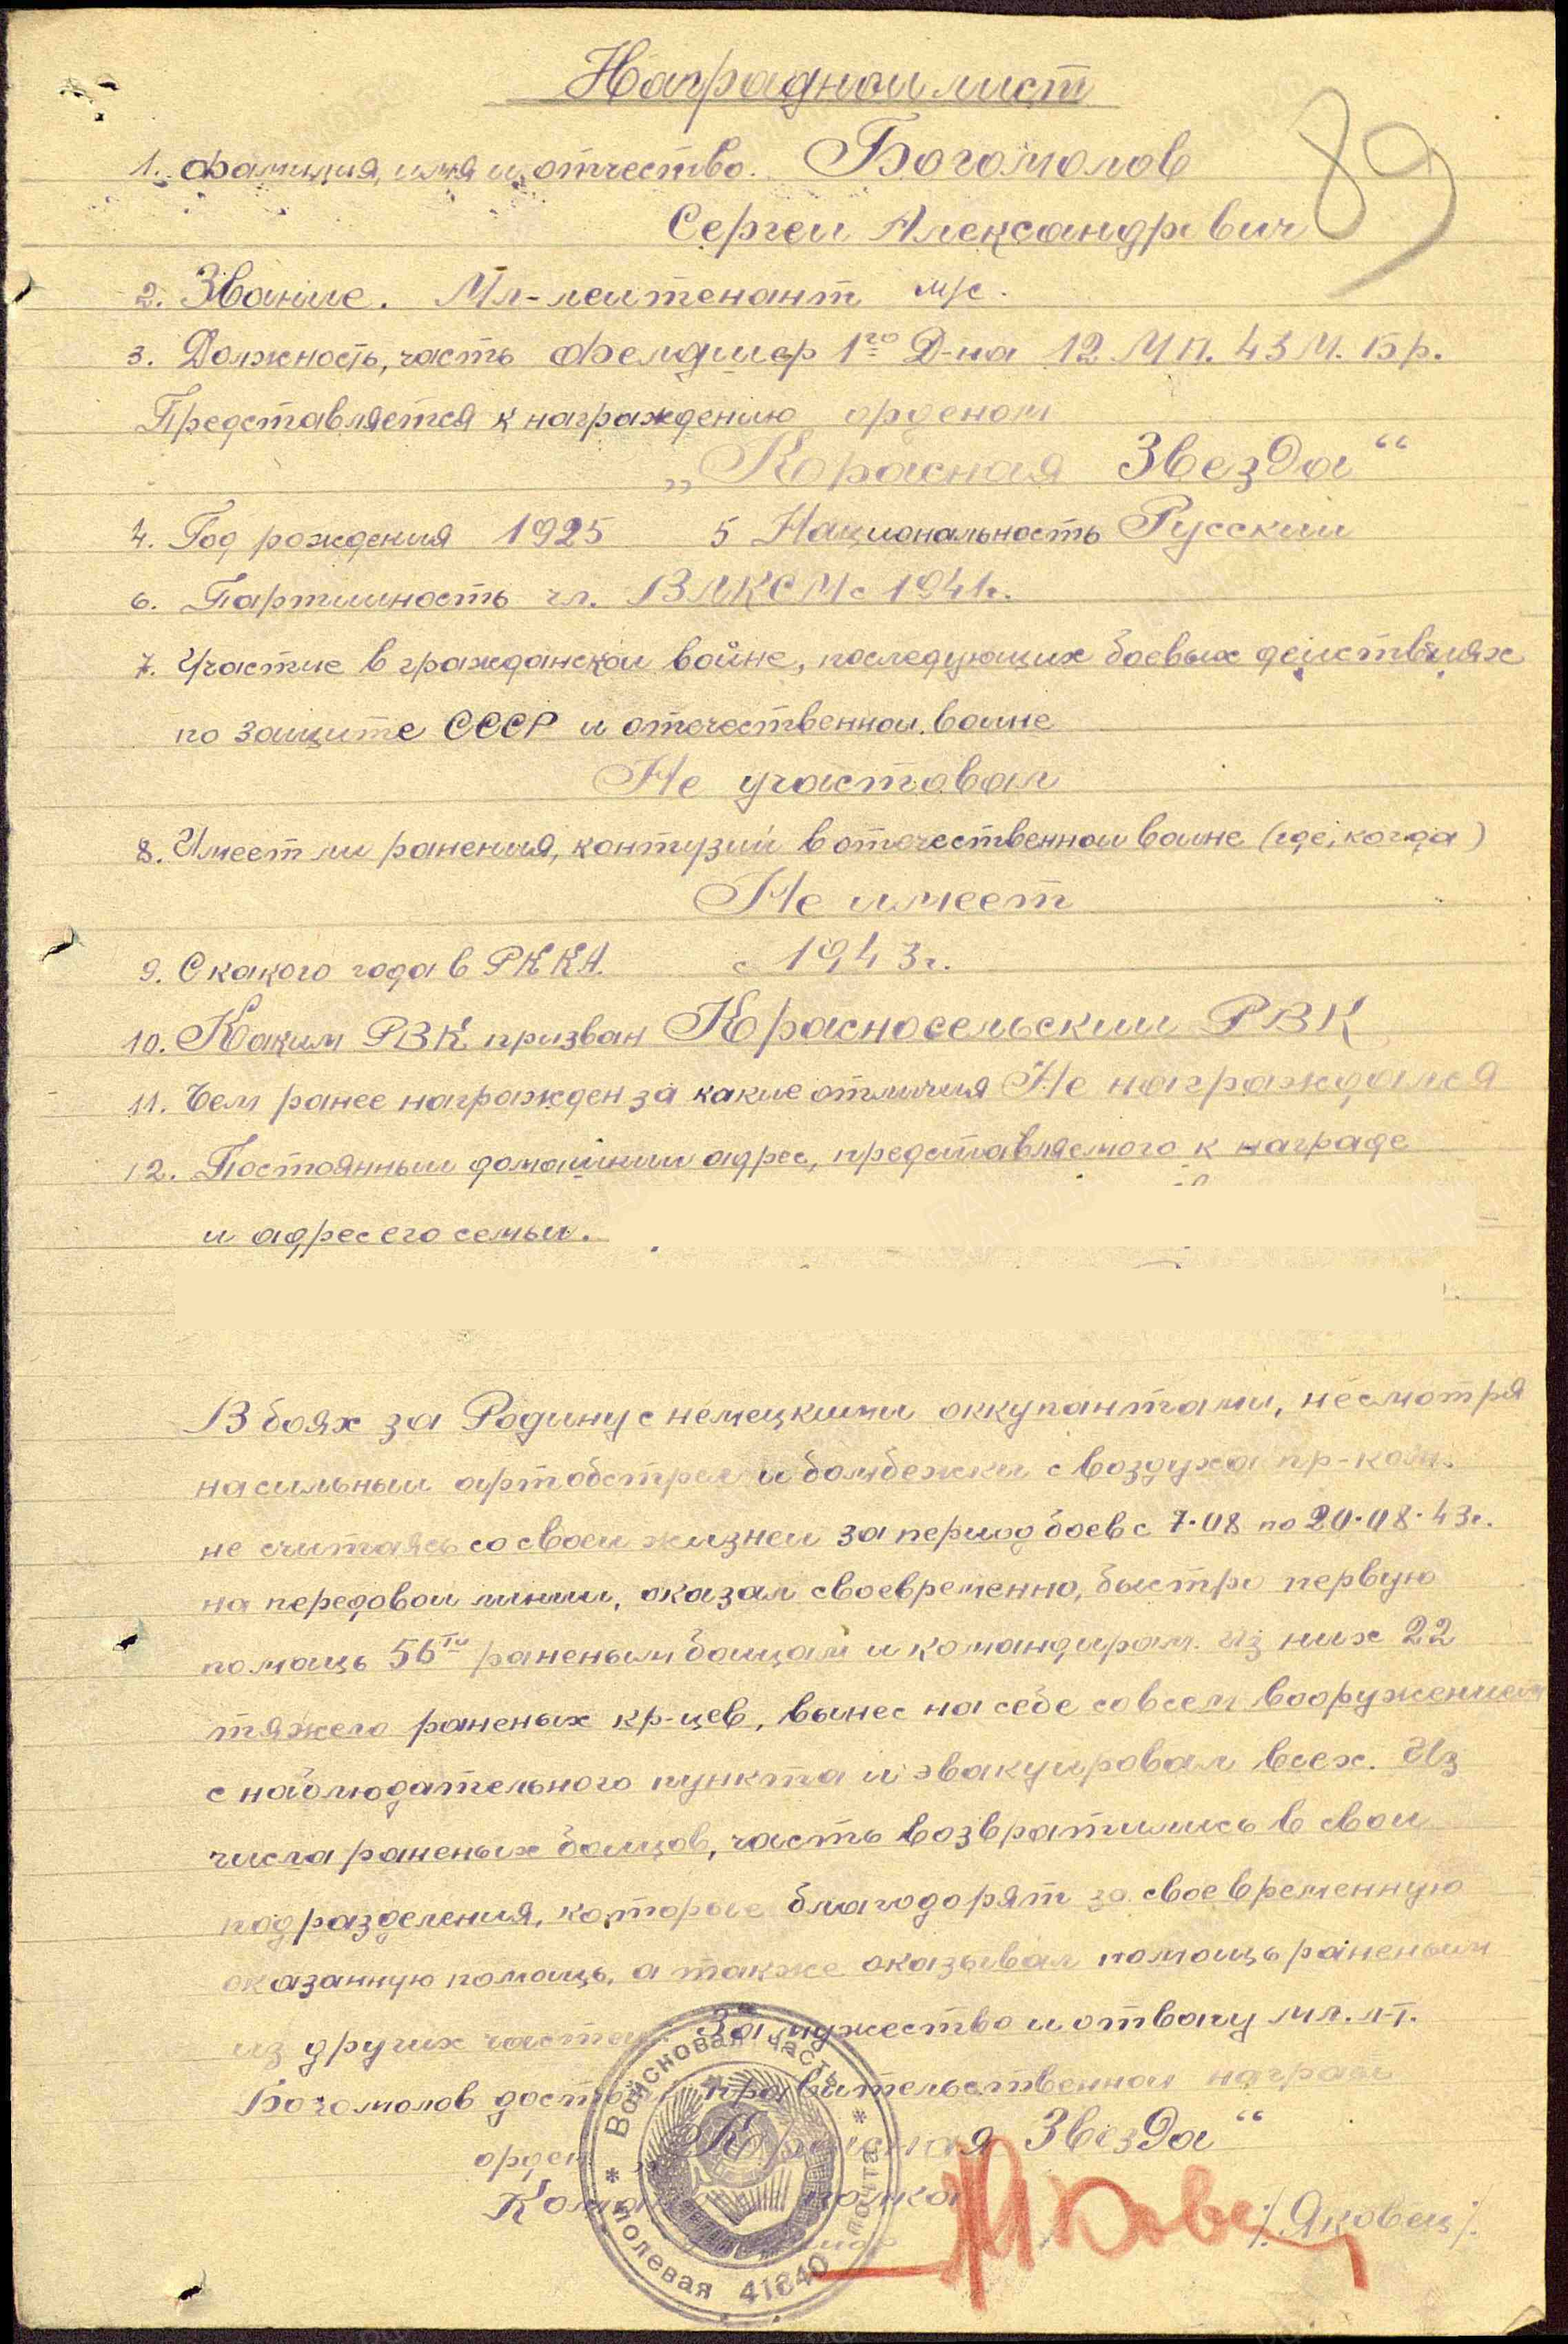 Наградной лист
89
1. Фамилия, имя и отчество. Богомолов
Сергей Александрович
2. Звание. Мл-лейтенант м/с.
3. Должность, часть Фелдшер 1го Д-на 12 МП. 43 М. Бр.
Представляется к награждению орденом
„Красная Звезда“
4. Год рождения 1925 5 Национальность Русский
6. Партийность чл. ВЛКСМ с 1941г.
7. Участие в гражданской войне, последующих боевых действиях
по защите СССР и отечественной войне
Не участовал
8. Имеет ли ранения, контузий в отечественной войне (где, когда)
Не имеет
9. С какого года в РККА. с 1943г.
10. Каким РВК призван Красносельский РВК
11. Чем ранее награжден за какие отличия Не награждался
12. Постоянный домашний адрес, представляемого к награде
и адрес его семьи.
В боях за Родину с немецкими оккупантами, несмотря
на сильный артобстрел и бомбежки с воздуха пр-ком.
не считаясь со своей жизней за период боев с 7.08 по 20.08.43г.
на передовой линии, оказал своевременно, быстро первую
помощь 56ти раненым бойцам и командирам. Из них 22
тяжело раненых кр-цев, вынес на себе со всем вооружением
с наблюдательного пункта и эвакуировал всех. Из
числа раненых бойцов, часть возвратились в свои
подразделения, которые благодорят за своевременную
оказанную помощь, а также оказывал помощь раненым
из других частей. За мужество и отвагу мл. л-т.
Богомолов достоин правительственной награды
орден „Красная Звезда“
Командир полка
/Яковец/.
* Войсковая часть * полевая почта 41840